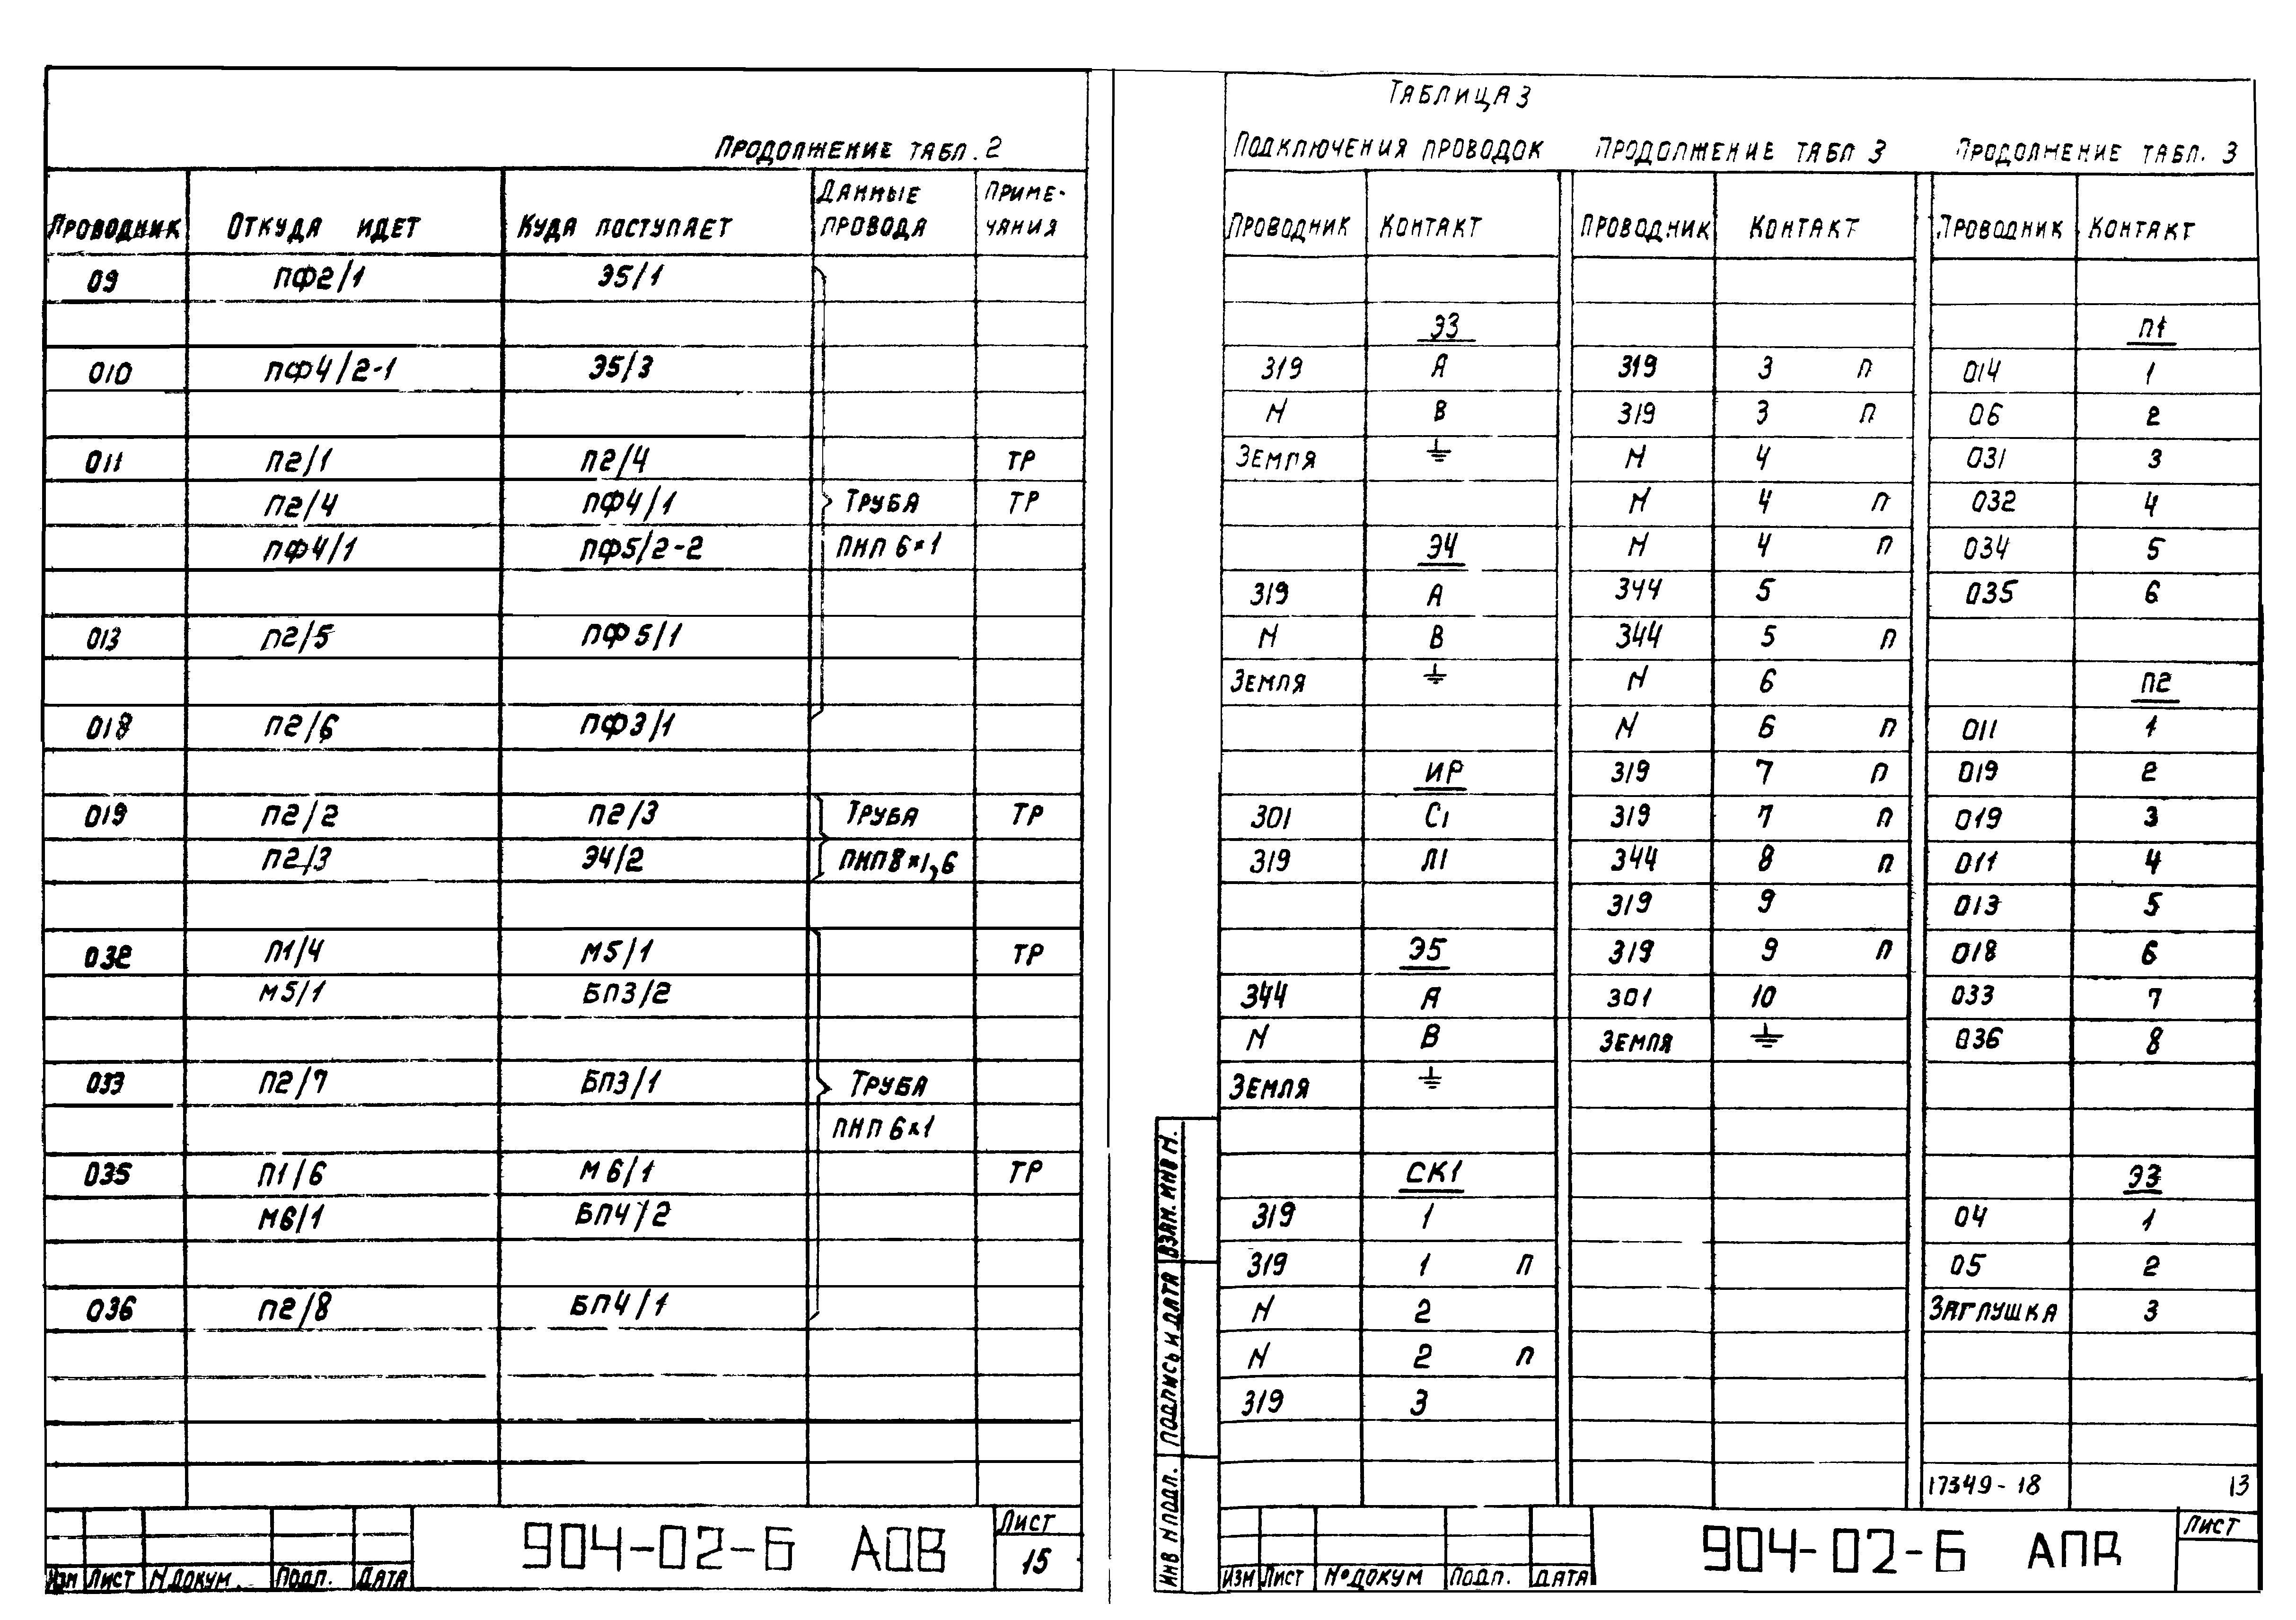 Продолжение табл. 2
Проводник Откуда идет Куда поступает Данные провода Примечания
09 ПФ2/1 Э5/1
010 ПФ4/2-1 Э5/3
011 П2/1 П2/4 ТР
П2/4 ПФ4/1 Труба ТР
ПФ4/1 ПФ5/2-2 ПНП 6×1
013 П2/5 ПФ5/1
018 П2/6 ПФ3/1
019 П2/2 П2/3 Труба ТР
П2/3 Э4/2 ПНП 8×1,6
032 П1/4 М5/1 ТР
М5/1 БП3/2
033 П2/7 БП3/1 Труба
ПНП 6×1
035 П1/6 М6/1 ТР
М6/1 БП4/2
036 П2/8 БП4/1
Изм Лист N докум. Подп. Дата
904-02-6 АОВ
Лист
15
Таблица 3
Подключения проводок
Проводник Контакт
Э3
319 А
N В
Земля ⏚
Э4
319 А
N В
Земля ⏚
ИР
301 С1
319 Л1
Э5
344 А
N В
Земля ⏚
СК1
319 1
319 1 П
N 2
N 2 П
319 3
Продолжение табл 3
Проводник Контакт
319 3 П
319 3 П
N 4
N 4 П
N 4 П
344 5
344 5 П
N 6
N 6 П
319 7 П
319 7 П
344 8 П
319 9
319 9 П
301 10
Земля ⏚
Продолжение табл. 3
Проводник Контакт
П1
014 1
06 2
031 3
032 4
034 5
035 6
П2
011 1
019 2
019 3
011 4
013 5
018 6
033 7
036 8
Э3
04 1
05 2
Заглушка 3
17349-18 13
Инв N подл. Подпись и дата Взам. инв N.
Изм Лист N° докум Подп. Дата
904-02-6 АПВ
Лист